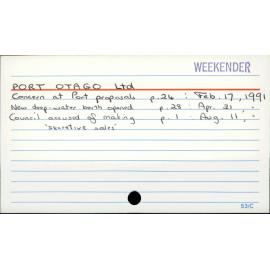 WEEKENDER
PORT OTAGO Ltd
Concern at Port proposals p.24 : Feb. 17, 1991
New deep-water berth opened p.28 : Apr. 21, "
Council accused of making p.1 : Aug. 11, "
'secretive sales'
53/C